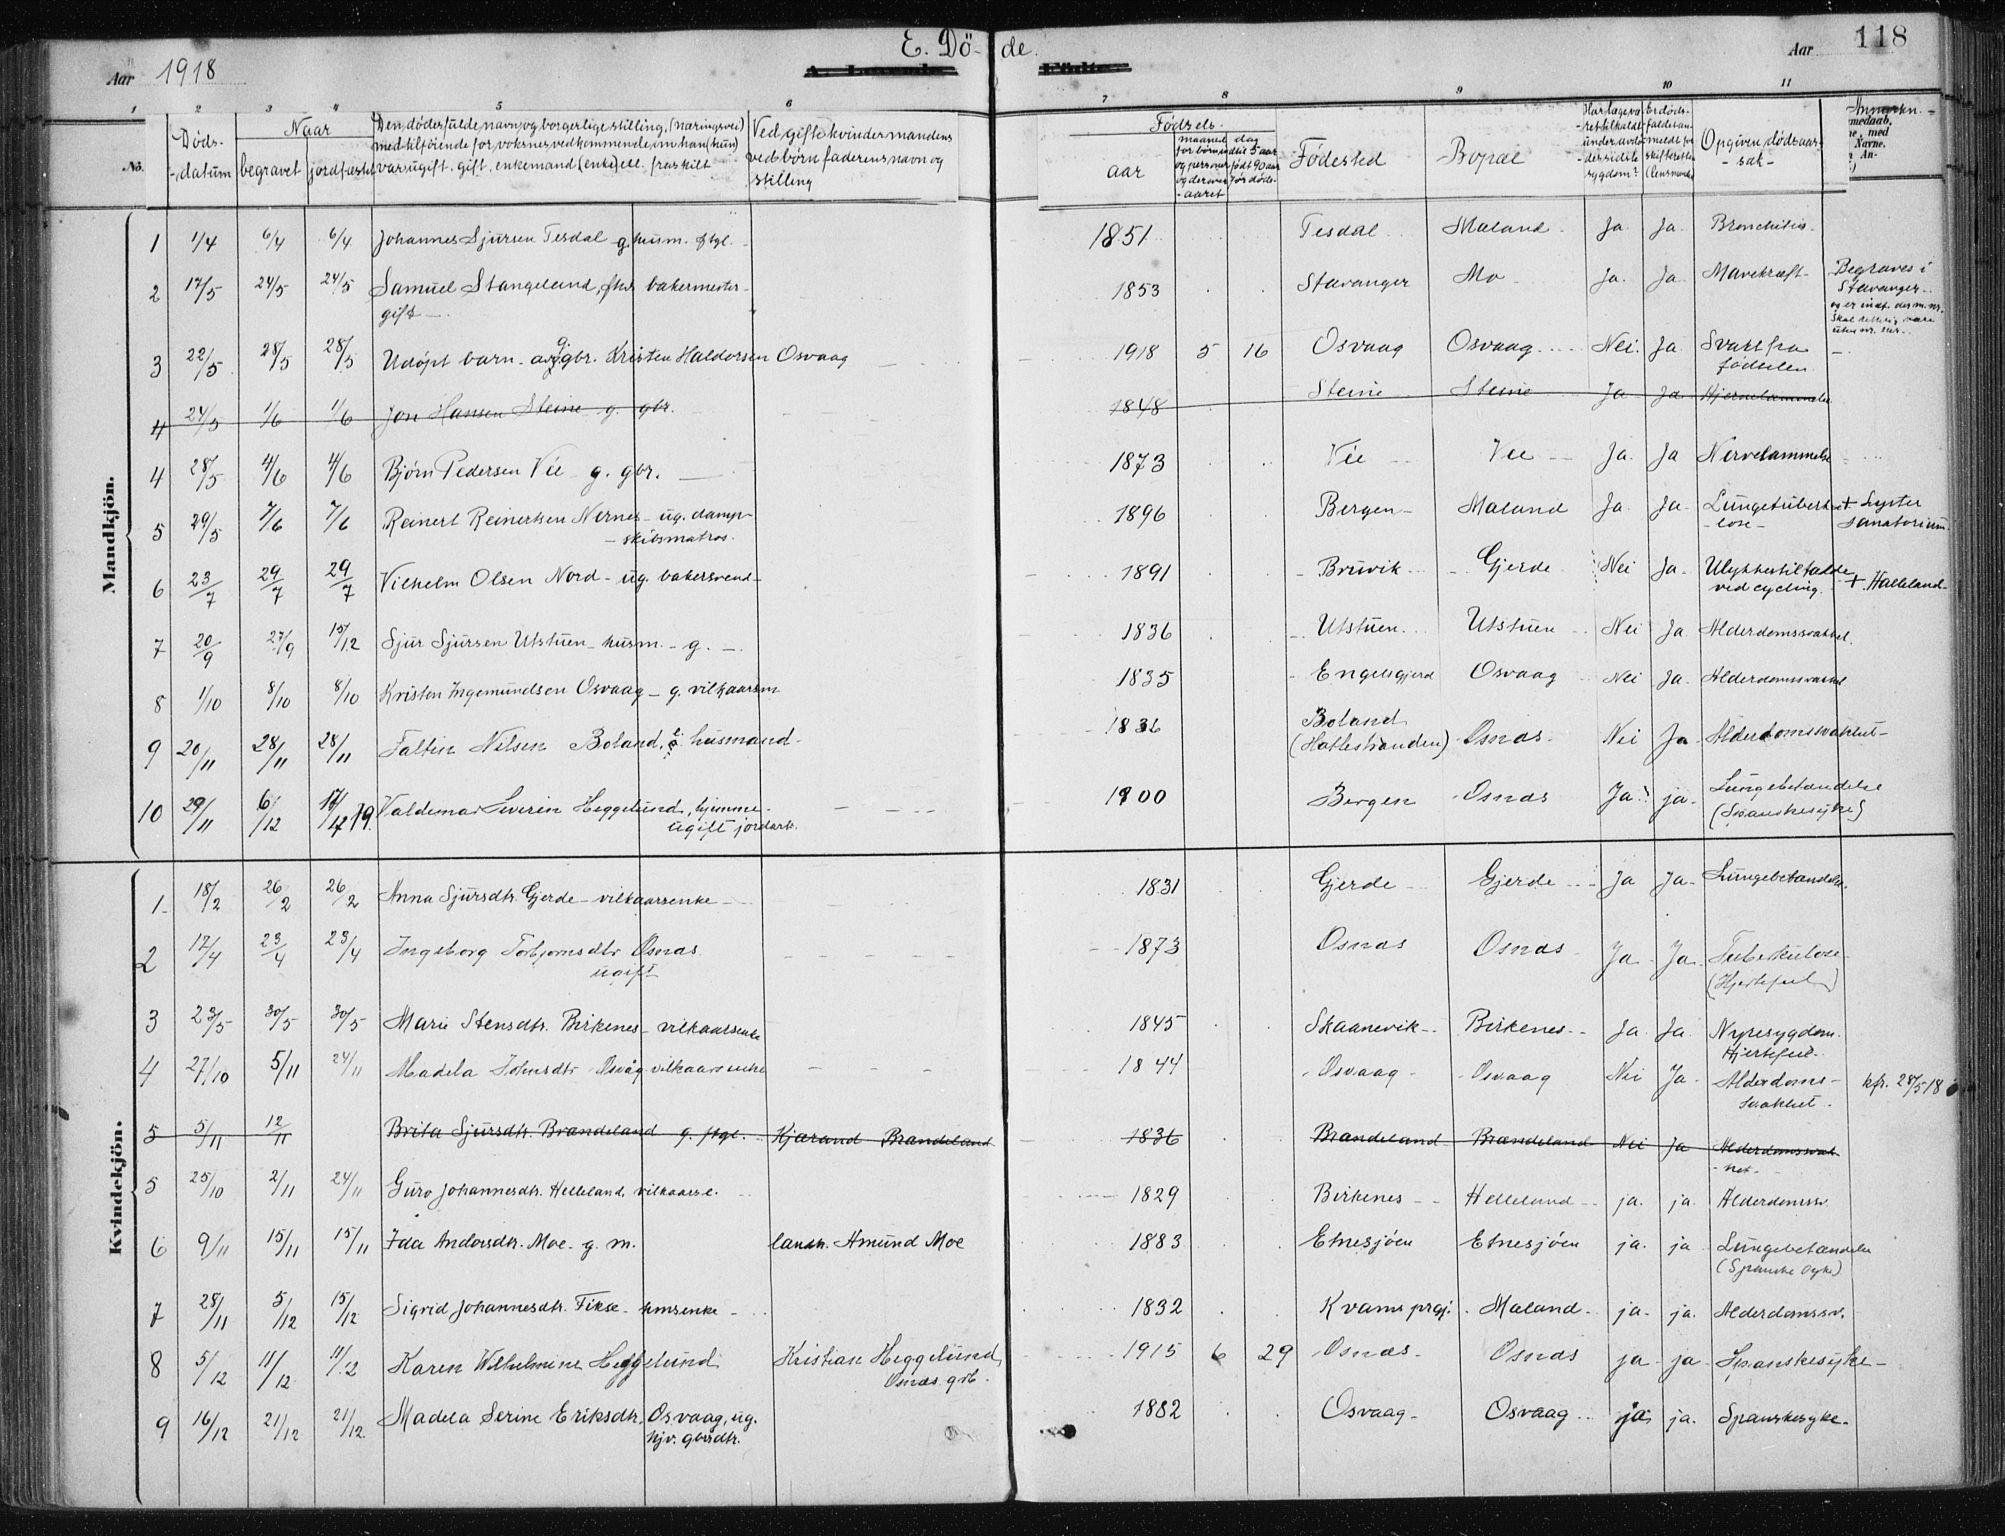 E. Dö- de.
118
Aar 1918
Aar
1 2 3 4 5 6 7 8 9 10 11
No. Döds-datum Naar begravet jordfæstet Den dödes fulde navn og borgerlige stilling, (næringsvei) med tilföiende for voksnes vedkommende, om han (hun) var ugift, gift, enkemand (enke) ell. fraskilt. Ved gifte kvinder mandens ved börn faderens navn og stilling Födsels- aar Födested Bopæl Opgiven dödsaarsak
Mandkjön.
1 1/4 6/4 6/4 Johannes Sjursen Tesdal g. husm. ftgl. 1851 Tesdal Maland Ja Ja Bronchitis
2 17/5 24/5 24/5 Samuel Stangeland, fhv. bakermester gift 1853 Stavanger Mo Ja. Ja Mavekræft Begraves i Stavanger
3 22/5 28/5 28/5 Udöpt barn av gbr. Kristen Haldorsen Osvaag 1918 5 16 Osvaag Osvaag Nei Ja Svakt fra födselen
4 24/5 1/6 1/6 Jon Hansen Steine g. gbr. 1848 Steine Steine Ja Ja Hjernelammelse
4 28/5 4/6 4/6 Björn Pedersen Vie g. gbr. 1873 Vie Vie Ja. Ja Nervelammelse
5 29/5 7/6 7/6 Reinert Reinertsen Nernes ug. damp-skibsmatros. 1896 Bergen Maland Ja Ja Lungetuberkulose + Lyster Sanatorium
6 23/7 29/7 29/7 Vilhelm Olsen Nord ug. bakersvend 1891 Bruvik Gjerde Nei Ja Ulykkestilfælde ved cycling. + Halleland
7 20/9 27/9 15/12 Sjur Sjursen Utstuen husm. g. 1836 Utstuen Utstuen Nei Ja Alderdomssvakhet
8 1/10 8/10 8/10 Kristen Ingemundsen Osvaag g. vilkaarsm 1835 Engelsgjerd Osvaag Nei Ja. Alderdomssvakhet
9 20/11 28/11 28/11 Faltin Nilsen Boland, husmand 1836 Boland (Hatlestranden) Osnas Nei Ja Alderdomssvakhet
10 29/11 6/12 Valdemar Severin Heggelund, hjemme ugift jordarb. 1900 Bergen Osnas Ja ja Lungebetændelse (Spanskesyke)
Kvindekjön.
1 18/2 26/2 26/2 Anna Sjursdtr. Gjerde vilkaarsenke 1831 Gjerde Gjerde Ja Ja Lungebetændelse
2 17/4 23/4 23/4 Ingeborg Torbjörnsdtr Osnas ugift 1873 Osnas Osnas Ja Ja Tuberkulose (Hjertefeil)
3 23/5 30/5 30/5 Marie Stensdtr. Birkenes vilkaarsenke 1845 Skaanevik Birkenes Ja Ja Nyresygdom. Hjertefeil
4 27/10 5/11 24/11 Madela Johnsdtr Osvåg vilkaarsenke 1844 Osvaag Osvaag Nei Ja Alderdoms-svakhet. kfr. 28/5 18
5 5/11 12/11 Brita Sjursdtr. Brandeland g. ftgl. Kjærand Brandeland 1836 Brandeland Brandeland Nei Ja Alderdomssvakhet
5 25/10 2/11 24/11 Guro Johannesdtr. Helleland, vilkaarse. 1829 Birkenes Helleland ja. ja. Alderdomssv.
6 9/11 15/11 15/11 Ida Andersdtr. Moe g. m. landh. Amund Moe 1883 Etnesjöen Etnesjöen ja. ja Lungebetændelse (Spanske syke)
7 28/11 5/12 15/12 Sigrid Johannesdtr. Fikse hmsenke 1832 Kvams prgj. Maland ja. ja. Alderdomssv.
8 5/12 11/12 11/12 Karen Wilhelmine Heggelund Kristian Heggelund, Osnas grb. 1915 6 29 Osnas Osnas ja ja Spanskesyke
9 16/12 21/12 21/12 Madela Serine Eriksdtr. Osvaag, ug. hjv. gbrsdtr. 1882 Osvaag Osvaag ja ja. Spanskesyke